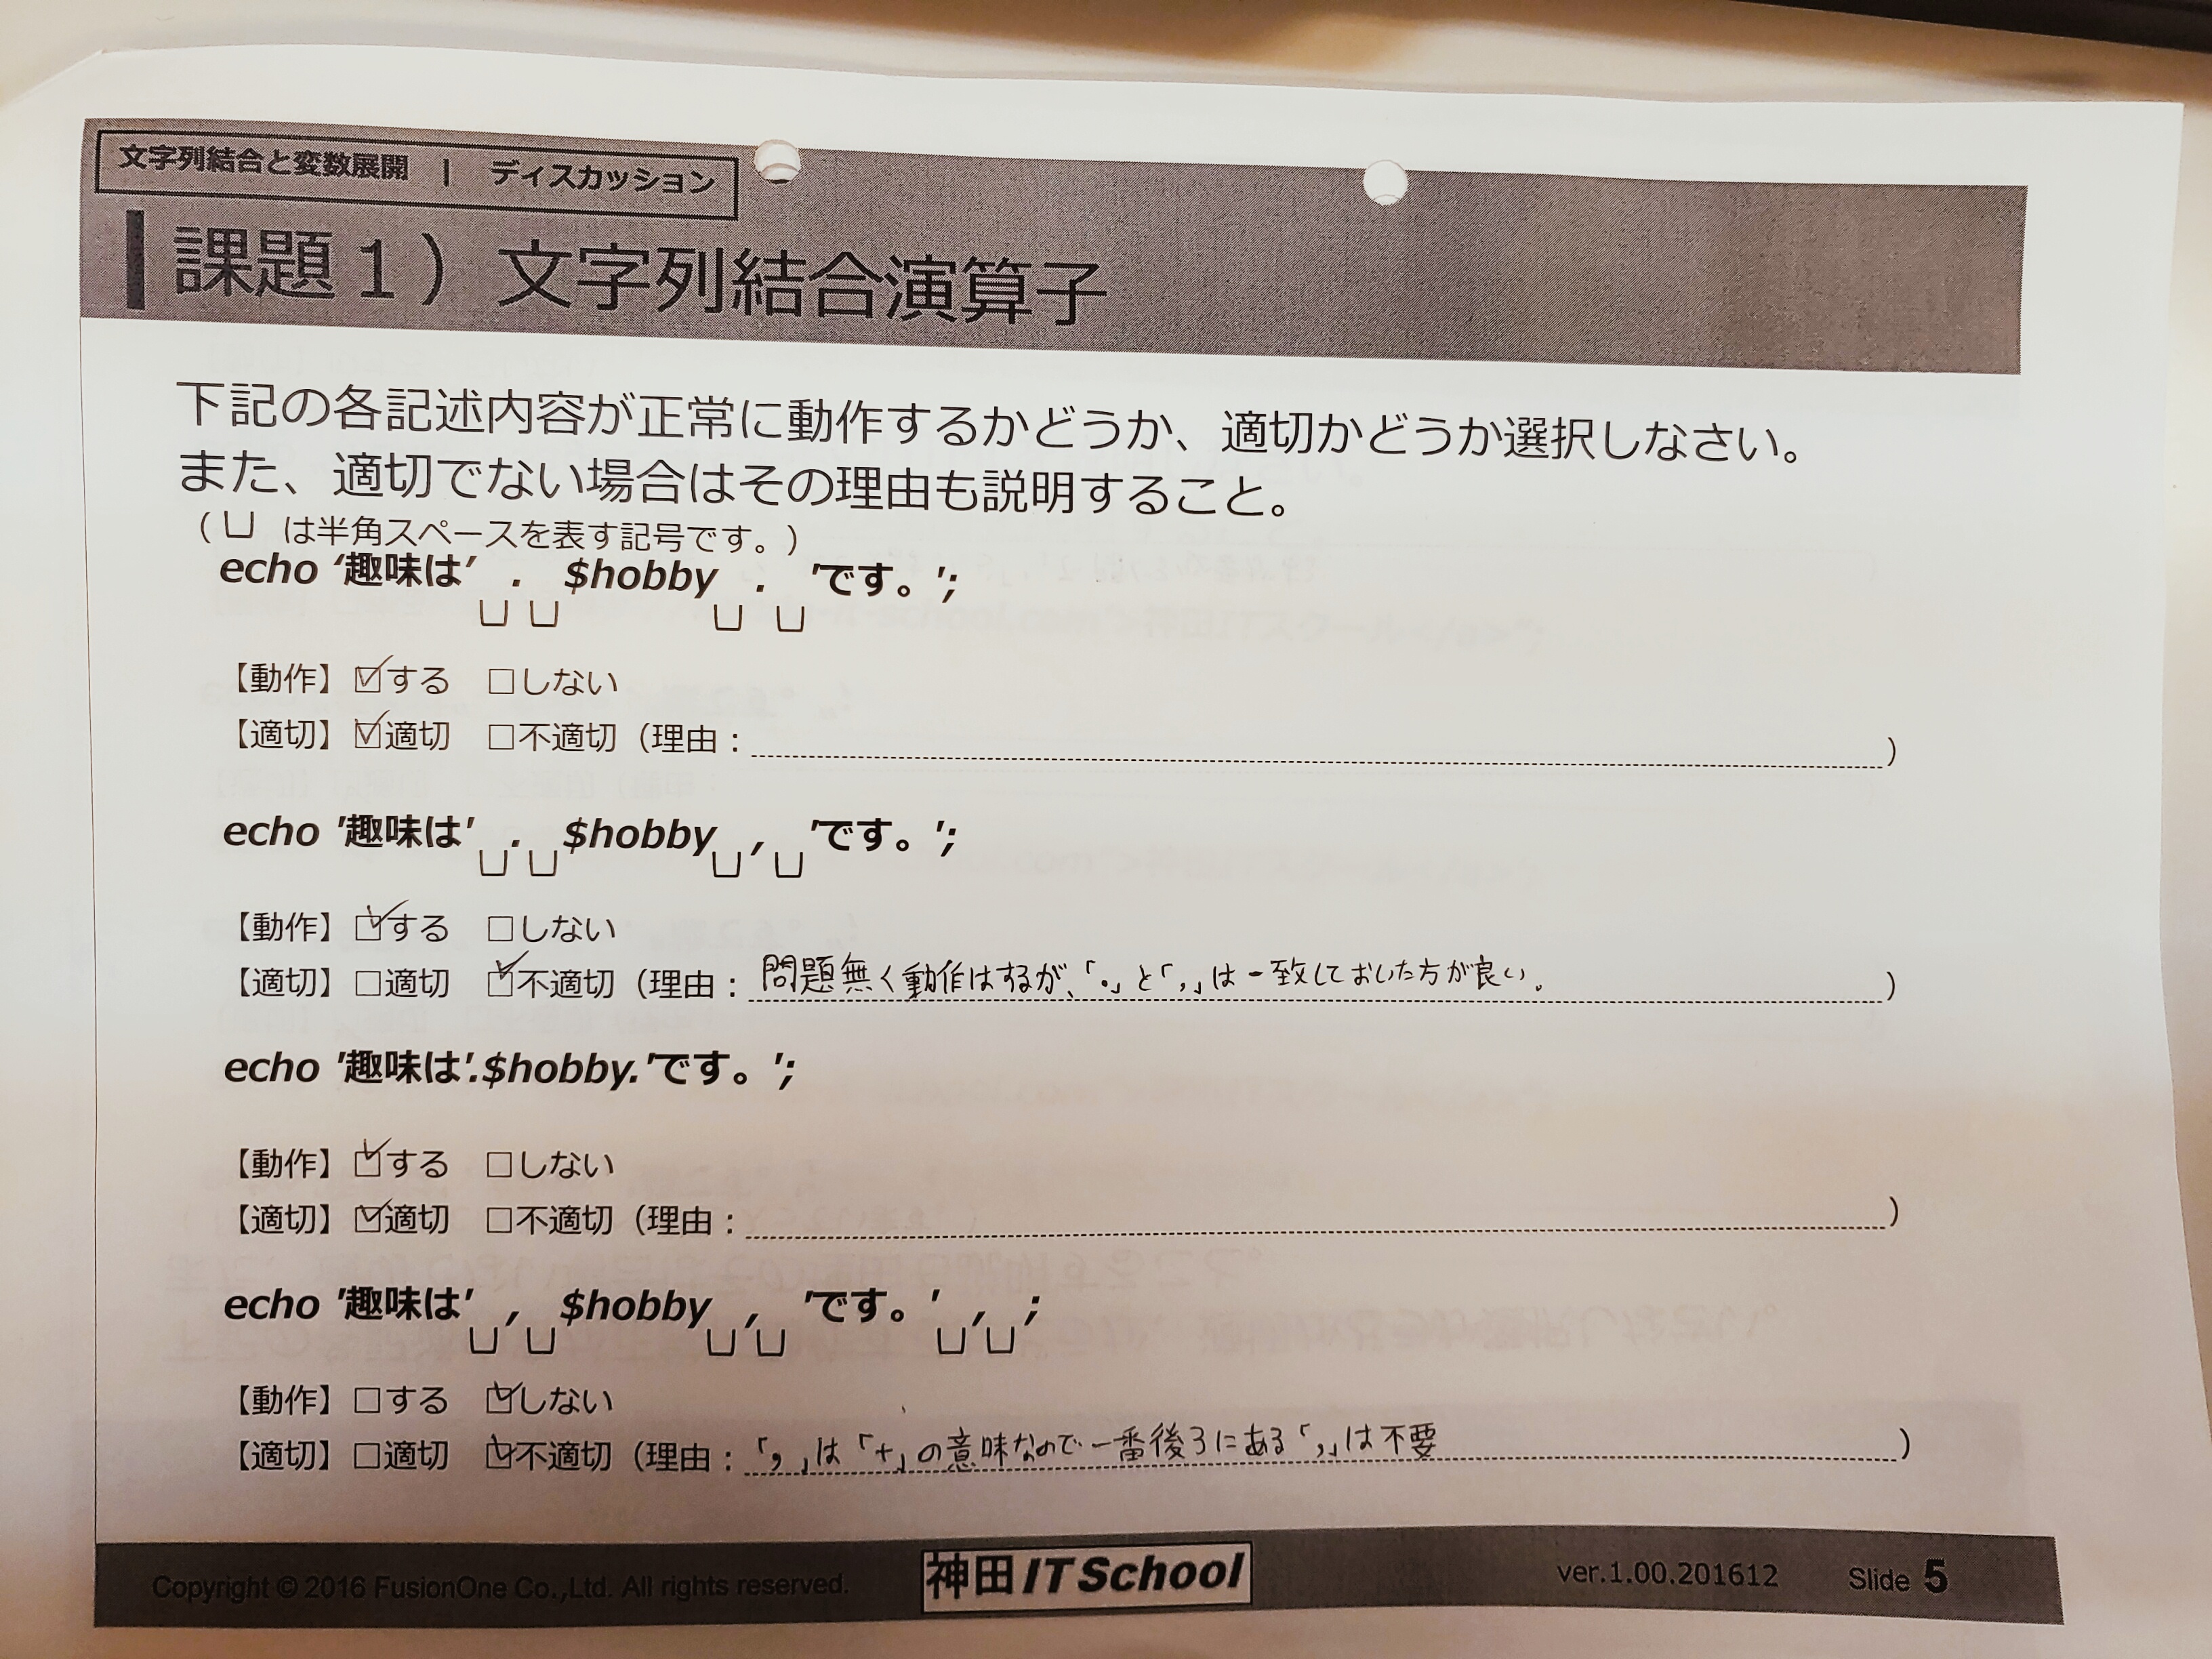 文字列結合と変数展開 | ディスカッション
課題１）文字列結合演算子
下記の各記述内容が正常に動作するかどうか、適切かどうか選択しなさい。
また、適切でない場合はその理由も説明すること。
（␣ は半角スペースを表す記号です。）
echo ‘趣味は’␣.␣$hobby␣.␣'です。';
【動作】☑する □しない
【適切】☑適切 □不適切（理由：）
echo '趣味は'␣.␣$hobby␣,␣'です。';
【動作】☑する □しない
【適切】□適切 ☑不適切（理由：問題無く動作はするが、「.」と「,」は一致しておいた方が良い。）
echo '趣味は'.$hobby.'です。';
【動作】☑する □しない
【適切】☑適切 □不適切（理由：）
echo '趣味は'␣,␣$hobby␣,␣'です。'␣,␣;
【動作】□する ☑しない
【適切】□適切 ☑不適切（理由：「,」は「+」の意味なので一番後ろにある「,」は不要）
Copyright © 2016 FusionOne Co.,Ltd. All rights reserved. 神田IT School ver.1.00.201612 Slide 5